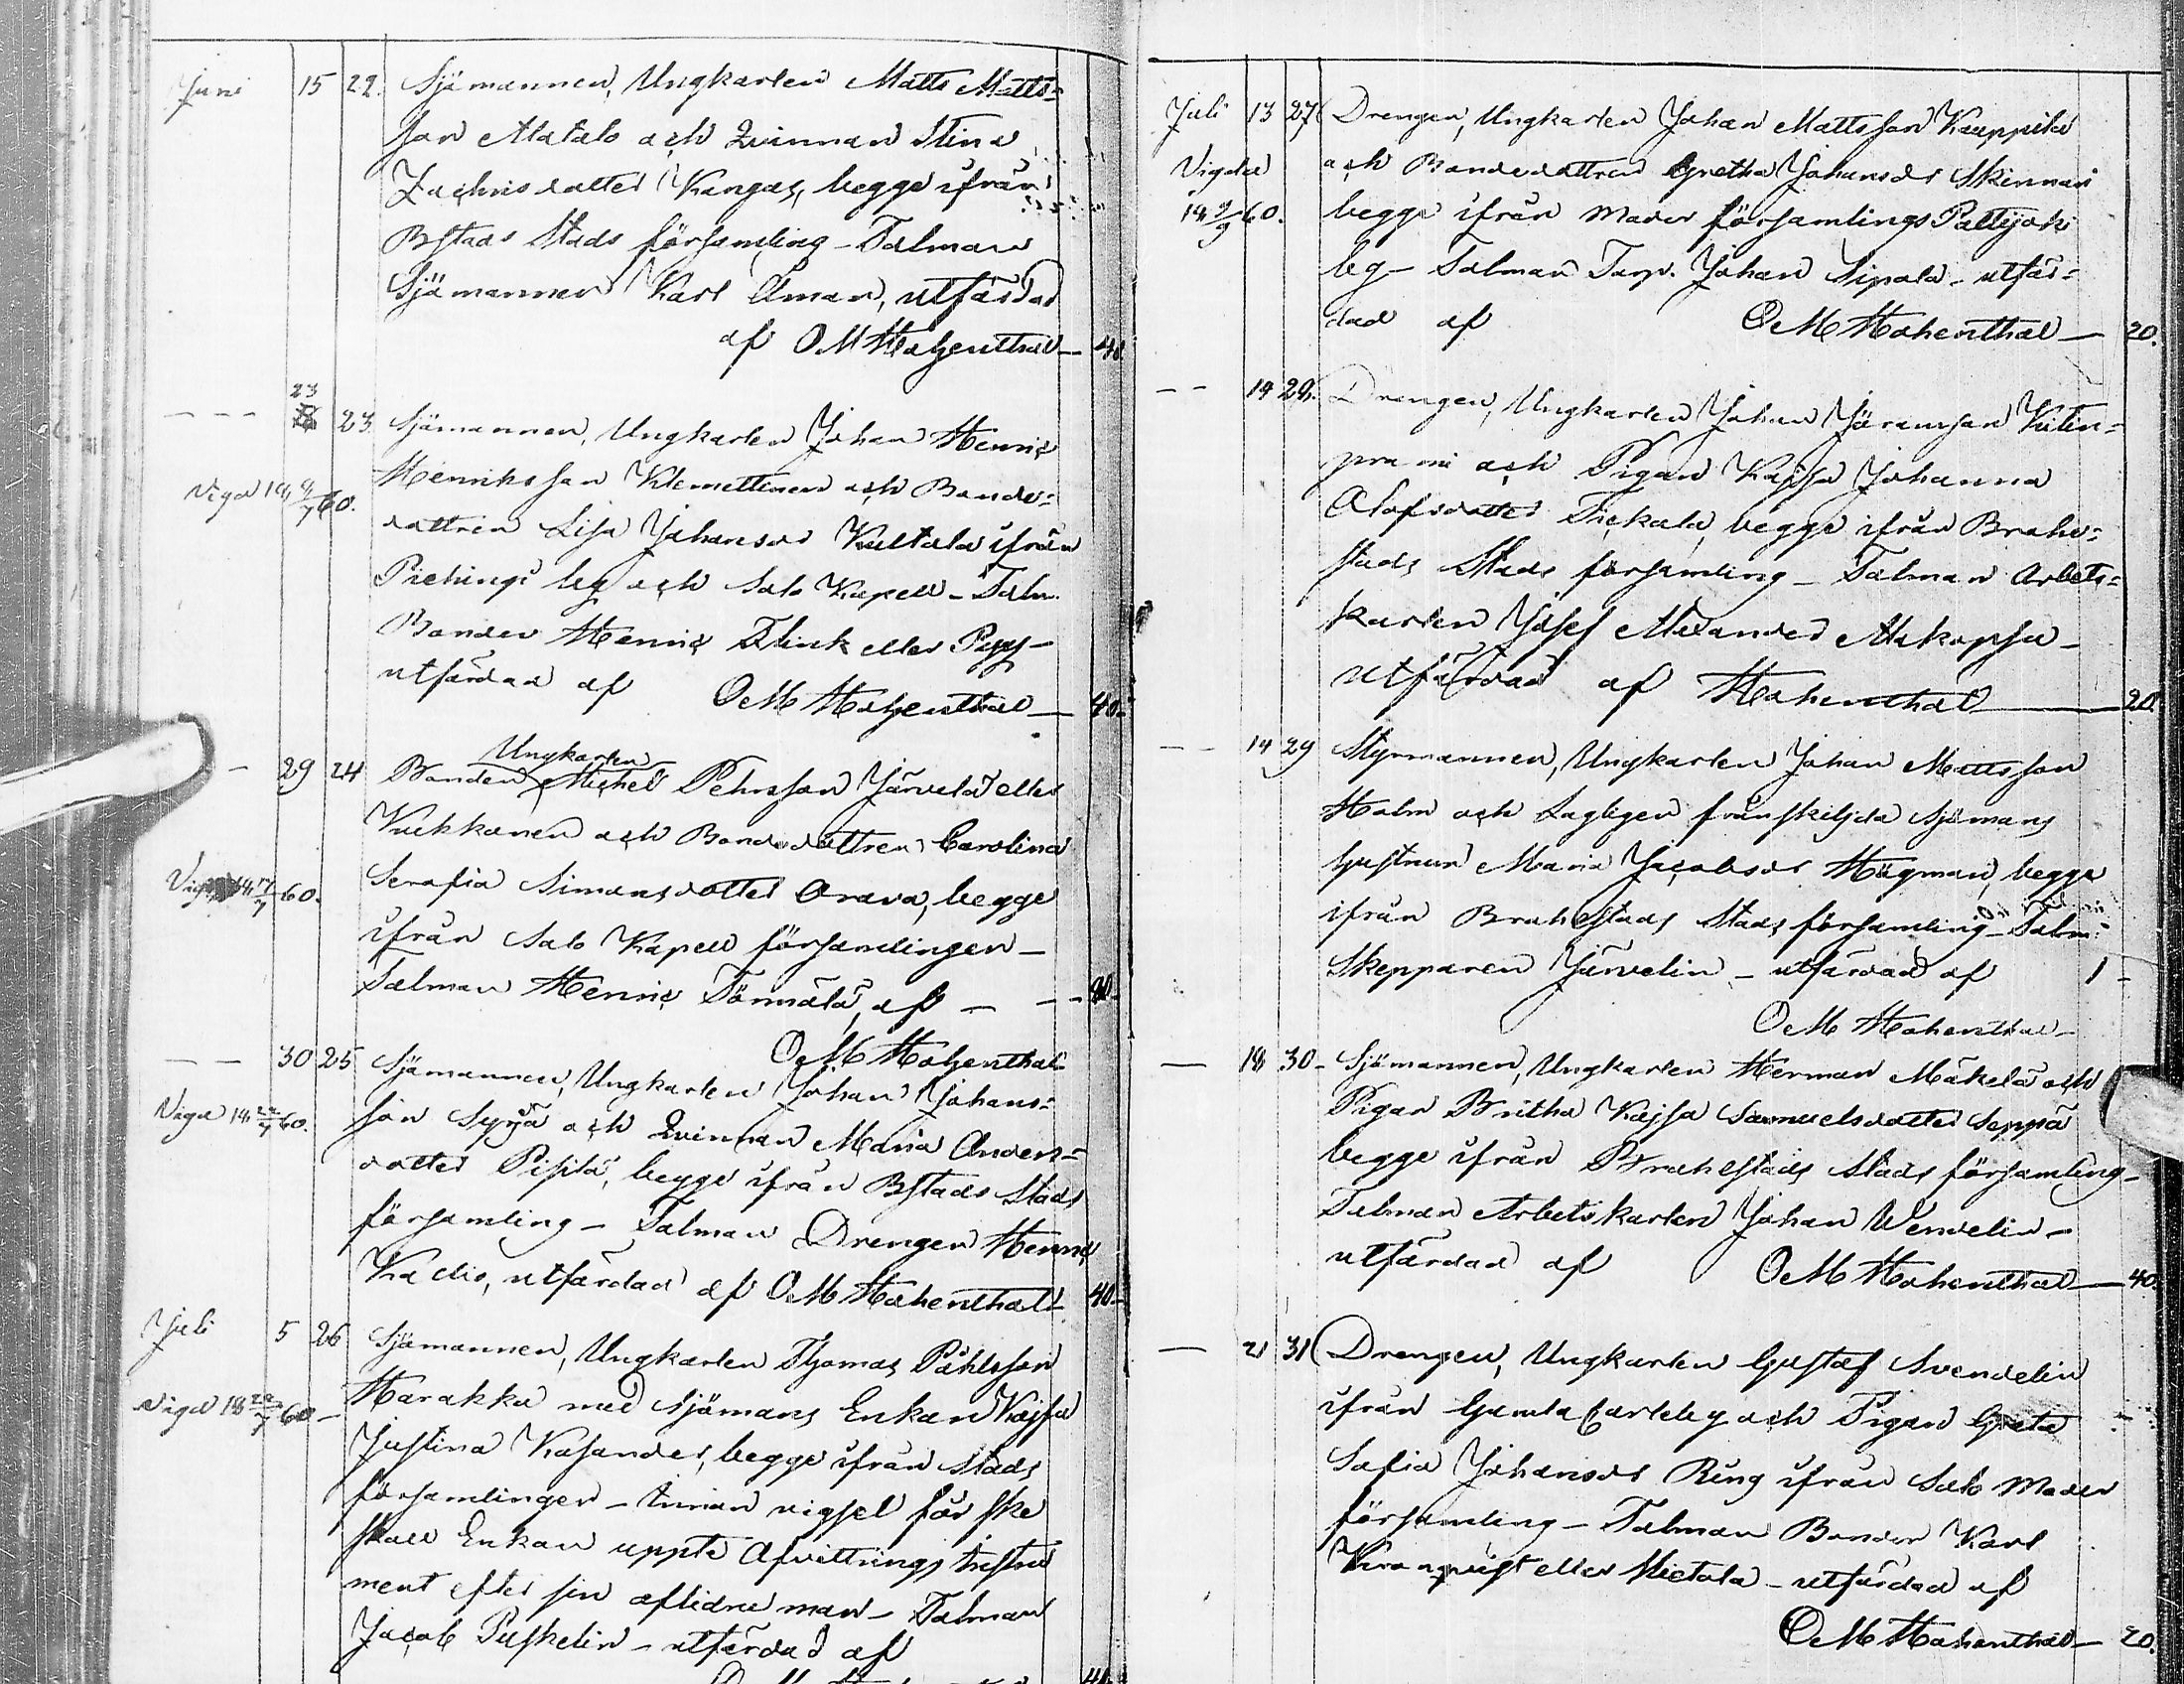 Juni 15 22. Sjömannen, Ungkarlen Matts Matts-
son Alatalo och Qvinnan Stina
Zachrisdotter Kangas, begge ifrån
Bstads Stads församling - Talman
Sjömannen Karl Öman, utfärdad
af OM Hohenthal - 40
- - - 23 23. Sjömannen, Ungkarlen Johan Henric
Henriksson Klemettinen och Bonde-
Vigd 18 9/7 60.
dottren Lisa Johansdr Kultala ifrån
Piehingi by och Salo Kapell - Talm.
Bonden Henric Flink eller Pyy -
utfärdad af OM Hohenthal - 40 -
Ungkarlen
- 29 24 Bonden Michel Pehrsson Järvelä eller
Kukkonen och Bondedottren Carolina
Serafia Simonsdotter Orava, begge
Vigd 18 17/7 60.
ifrån Salo Kapell församlingen -
Talman Henric Tönnälä, af - -
OM Hohenthal
- - 30 25 Sjömannen, Ungkarlen Johan Johans-
Vigd 18 22/7 60.
son Syrjä och Qvinnan Maria Anders-
dotter Pisilä, begge ifrån Bstads Stads
församling - Talman Drengen Henric
Kadis, utfärdad af OM Hohenthal - 40 -
Juli 5 26 Sjömannen, Ungkarlen Thomas Påhlsson
Vigd 18 22/7 60 -
Harakka med Sjömans Enkan Kajsa
Justina Kasander, begge ifrån Stads
församlingen - innan vigsel får ske
skall Enkan uppte Afvittrings Instru
ment efter sin aflidne man - Talman
Jacob Puskelin - utfärdad af
Juli 13 27 Drengen, Ungkarlen Johan Mattsson Kauppila
Vigda
och Bondedottren Gretha Johansdr Skinnari
18 9/9 60.
begge ifrån Moder församlings Pattijoki
by - Talman Torp. Johan Sipola - utfär-
dad af OM Hohenthal - 20.
- - 14 28. Drengen, Ungkarlen Johan Jöransson Kutin-
och Pigan Kajsa Johanna
Olofsdotter Tickala, begge ifrån Brahe-
stads Stads församling - Talman Arbets-
karlen Josef Alexander Alakopsa -
utfärdad af Hohenthal - 20.
- - 14 29 Styrmannen, Ungkarlen Johan Mattsson
Holm och Lagligen frånskiljda Sjömans
hustrun Maria Jacobsdr Högman, begge
ifrån Brahestads Stads församling - Talm:
Skepparen Järvelin - utfärdad af 1 -
OM Hohenthal -
- 18 30 - Sjömannen, Ungkarlen Herman Mäkelä och
Pigan Britha Kajsa Samuelsdotter Seppä
begge ifrån Brahestads Stads församling -
Talman Arbetskarlen Johan Wendelin -
utfärdad af OM Hohenthal - 40.
- 21 31 Drengen, Ungkarlen Gustaf Svendelin
ifrån Gamla Carleby och Pigan Greta
Sofia Johansdr Ring ifrån Salo Moder
församling - Talman Bonden Karl
Kronqvist eller Mietala - utfärdad af
OM Hohenthal - 20.